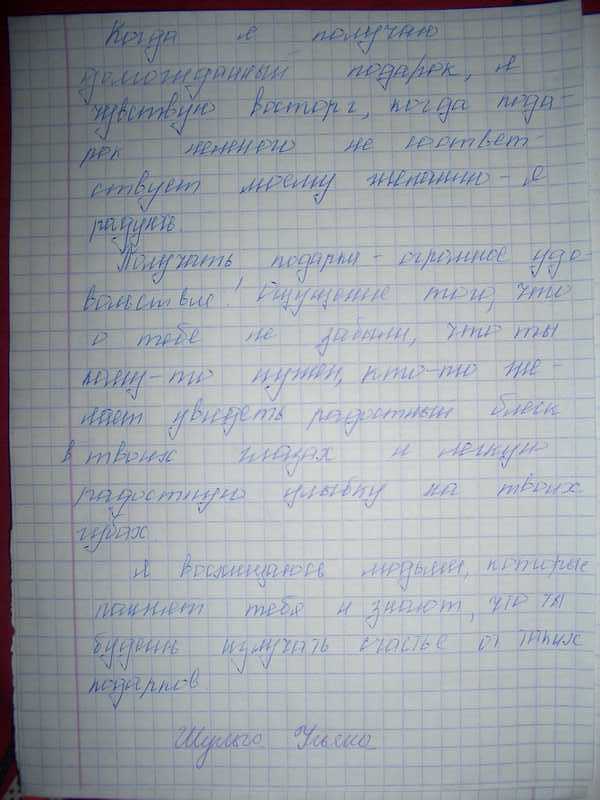 Когда я получаю
долгожданный подарок, я
чувствую восторг, когда пода-
рок немного не соответ-
ствует моему желанию - я
радуюсь.
Получать подарки - огромное удо-
вольствие! Ощущение того, что
о тебе не забыли, что ты
кому-то нужен, кто-то же-
лает увидеть радостный блеск
в твоих глазах и легкую
радостную улыбку на твоих
губах.
Я восхищаюсь людьми, которые
помнят тебя и знают, что ты
будешь излучать счастье от таких
подарков.
Шульга Ульяна